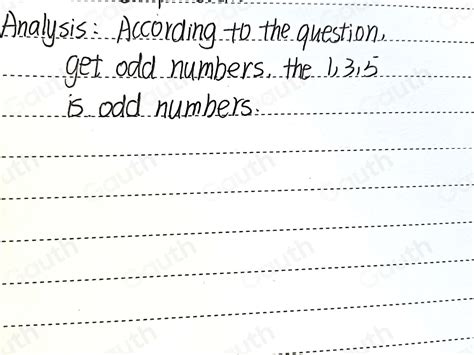 Analysis: According to the question,
get odd numbers, the 1,3,5
is odd numbers.